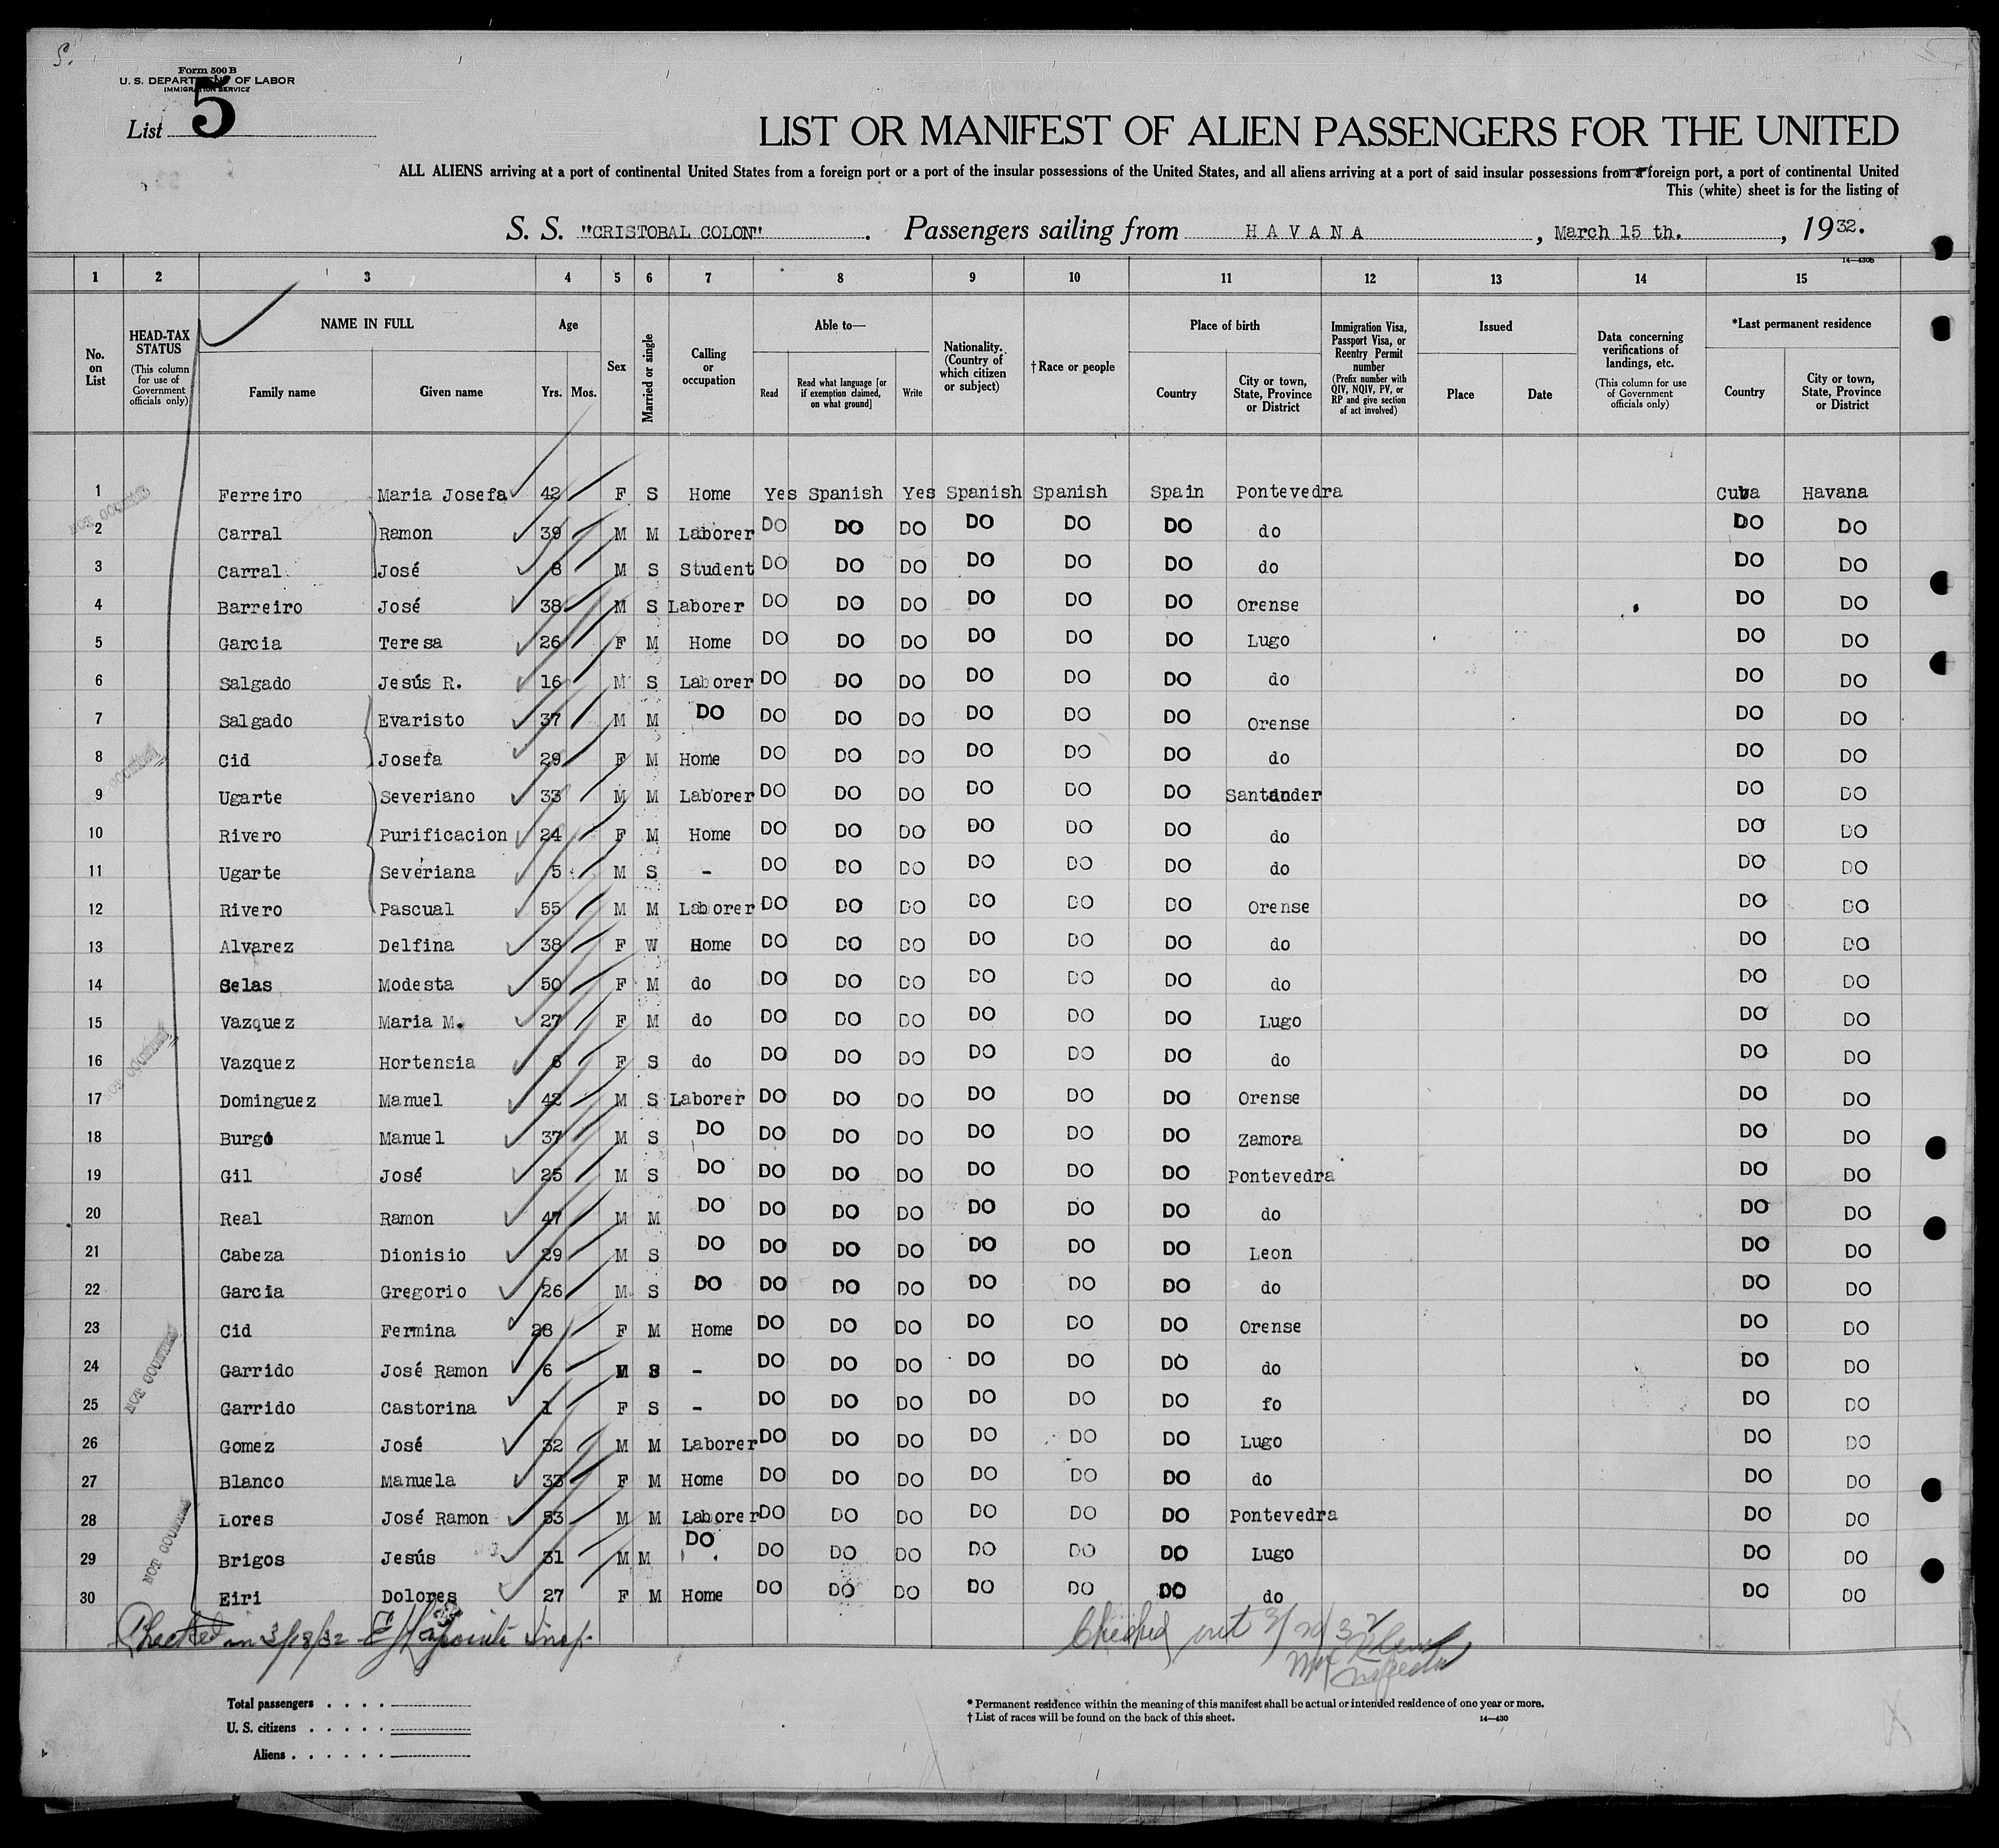 S.
Form 500 B
U. S. DEPARTMENT OF LABOR
IMMIGRATION SERVICE
List 5
LIST OR MANIFEST OF ALIEN PASSENGERS FOR THE UNITED
ALL ALIENS arriving at a port of continental United States from a foreign port or a port of the insular possessions of the United States, and all aliens arriving at a port of said insular possessions from a foreign port, a port of continental United
This (white) sheet is for the listing of
S. S. "CRISTOBAL COLON" . Passengers sailing from HAVANA , March 15 th. , 1932.
14—430B
1 2 3 4 5 6 7 8 9 10 11 12 13 14 15
No. on List
HEAD-TAX STATUS (This column for use of Government officials only)
NAME IN FULL Family name Given name
Age Yrs. Mos.
Sex
Married or single
Calling or occupation
Able to— Read Read what language [or if exemption claimed, on what ground] Write
Nationality. (Country of which citizen or subject)
†Race or people
Place of birth Country City or town, State, Province or District
Immigration Visa, Passport Visa, or Reentry Permit number (Prefix number with QIV, NQIV, PV, or RP and give section of act involved)
Issued Place Date
Data concerning verifications of landings, etc. (This column for use of Government officials only)
*Last permanent residence Country City or town, State, Province or District
1 Ferreiro Maria Josefa 42 F S Home Yes Spanish Yes Spanish Spanish Spain Pontevedra Cuba Havana
2 Carral Ramon 39 M M Laborer DO DO DO DO DO DO do DO DO
3 Carral José 8 M S Student DO DO DO DO DO DO do DO DO
4 Barreiro José 38 M S Laborer DO DO DO DO DO DO Orense DO DO
5 Garcia Teresa 26 F M Home DO DO DO DO DO DO Lugo DO DO
6 Salgado Jesús R. 16 M S Laborer DO DO DO DO DO DO do DO DO
7 Salgado Evaristo 37 M M DO DO DO DO DO DO DO Orense DO DO
8 Cid Josefa 29 F M Home DO DO DO DO DO DO do DO DO
9 Ugarte Severiano 33 M M Laborer DO DO DO DO DO DO Santander DO DO
10 Rivero Purificacion 24 F M Home DO DO DO DO DO DO do DO DO
11 Ugarte Severiana 5 M S - DO DO DO DO DO DO do DO DO
12 Rivero Pascual 55 M M Laborer DO DO DO DO DO DO Orense DO DO
13 Alvarez Delfina 38 F W Home DO DO DO DO DO DO do DO DO
14 Selas Modesta 50 F M do DO DO DO DO DO DO do DO DO
15 Vazquez Maria M. 27 F M do DO DO DO DO DO DO Lugo DO DO
16 Vazquez Hortensia 6 F S do DO DO DO DO DO DO do DO DO
17 Dominguez Manuel 42 M S Laborer DO DO DO DO DO DO Orense DO DO
18 Burgo Manuel 37 M S DO DO DO DO DO DO DO Zamora DO DO
19 Gil José 25 M S DO DO DO DO DO DO DO Pontevedra DO DO
20 Real Ramon 47 M M DO DO DO DO DO DO DO do DO DO
21 Cabeza Dionisio 29 M S DO DO DO DO DO DO DO Leon DO DO
22 Garcia Gregorio 26 M S DO DO DO DO DO DO DO do DO DO
23 Cid Fermina 28 F M Home DO DO DO DO DO DO Orense DO DO
24 Garrido José Ramon 6 M S - DO DO DO DO DO DO do DO DO
25 Garrido Castorina 1 F S - DO DO DO DO DO DO fo DO DO
26 Gomez José 32 M M Laborer DO DO DO DO DO DO Lugo DO DO
27 Blanco Manuela 33 F M Home DO DO DO DO DO DO do DO DO
28 Lores José Ramon 53 M M Laborer DO DO DO DO DO DO Pontevedra DO DO
29 Brigos Jesús 31 M M DO DO DO DO DO DO DO Lugo DO DO
30 Eiri Dolores 27 F M Home DO DO DO DO DO DO do DO DO
NOT COUNTED
NOT COUNTED
NOT COUNTED
NOT COUNTED
Checked in 3/18/32 Insp.
Checked out 3/20/32
Inspector
Total passengers . . . .
U. S. citizens . . . . .
Aliens . . . . . .
* Permanent residence within the meaning of this manifest shall be actual or intended residence of one year or more.
† List of races will be found on the back of this sheet.
14—430